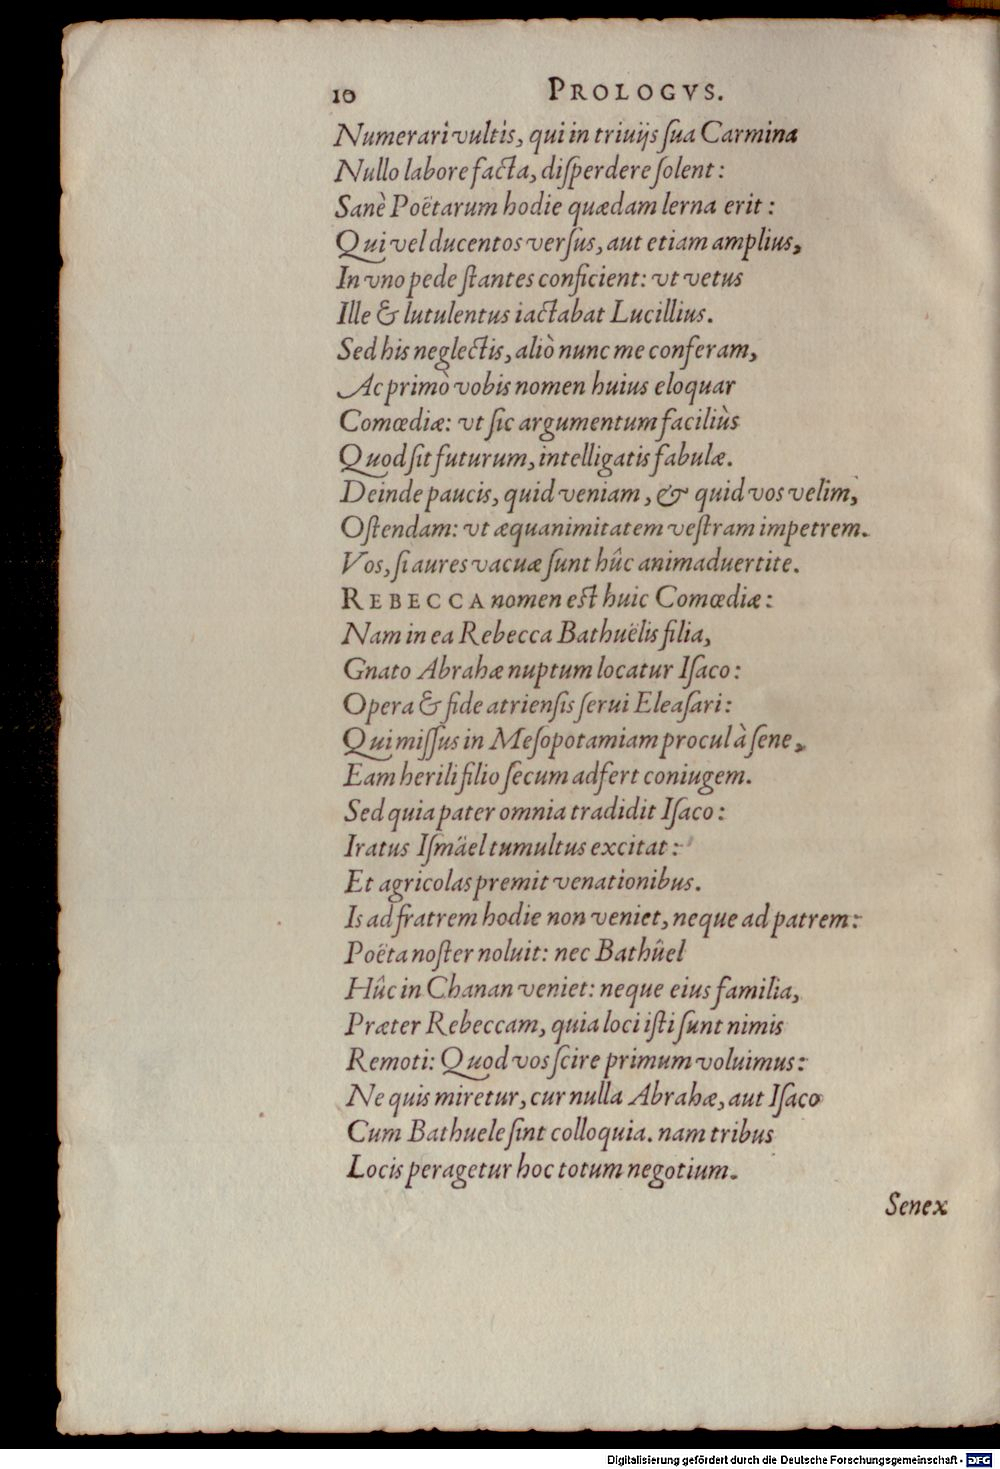 10 PROLOGVS.
Numerari vultis, qui in triuijs ſua Carmina
Nullo labore facta, diſperdere ſolent:
Sanè Poëtarum hodie quædam lerna erit:
Qui vel ducentos verſus, aut etiam amplius,
In vno pede ſtantes conficient: vt vetus
Ille & lutulentus iactabat Lucillius.
Sed his neglectis, aliò nunc me conferam,
Ac primò vobis nomen huius eloquar
Comœdiæ: vt ſic argumentum faciliùs
Quod ſit futurum, intelligatis fabulæ.
Deinde paucis, quid veniam, & quid vos velim,
Oſtendam: vt æquanimitatem veſtram impetrem.
Vos, ſi aures vacuæ ſunt hûc animaduertite.
REBECCA nomen est huic Comœdiæ:
Nam in ea Rebecca Bathuëlis filia,
Gnato Abrahæ nuptum locatur Iſaco:
Opera & fide atrienſis ſerui Eleaſari:
Qui miſſus in Meſopotamiam procul à ſene,
Eam herili filio ſecum adfert coniugem.
Sed quia pater omnia tradidit Iſaco:
Iratus Iſmäel tumultus excitat:
Et agricolas premit venationibus.
Is ad fratrem hodie non veniet, neque ad patrem:
Poëta noſter noluit: nec Bathûel
Hûc in Chanan veniet: neque eius familia,
Præter Rebeccam, quia loci iſti ſunt nimis
Remoti: Quod vos ſcire primum voluimus:
Ne quis miretur, cur nulla Abrahæ, aut Iſaco
Cum Bathuele ſint colloquia. nam tribus
Locis peragetur hoc totum negotium.
Senex
Digitalisierung gefördert durch die Deutsche Forschungsgemeinschaft - DFG